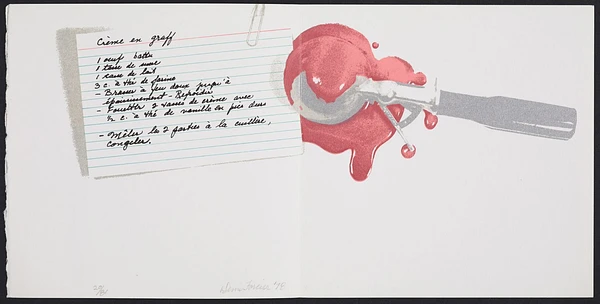 Crème en graff
1 oeuf battu
1 tasse de sucre
1 tasse de lait
3 c. à thé de farine
- Brasser à feu doux jusqu'à
épaississement - Refroidir
- Fouetter 2 tasses de crème avec
½ c. à thé de vanille en pics durs
- Mêler les 2 parties à la cuillère,
congeler.
'78